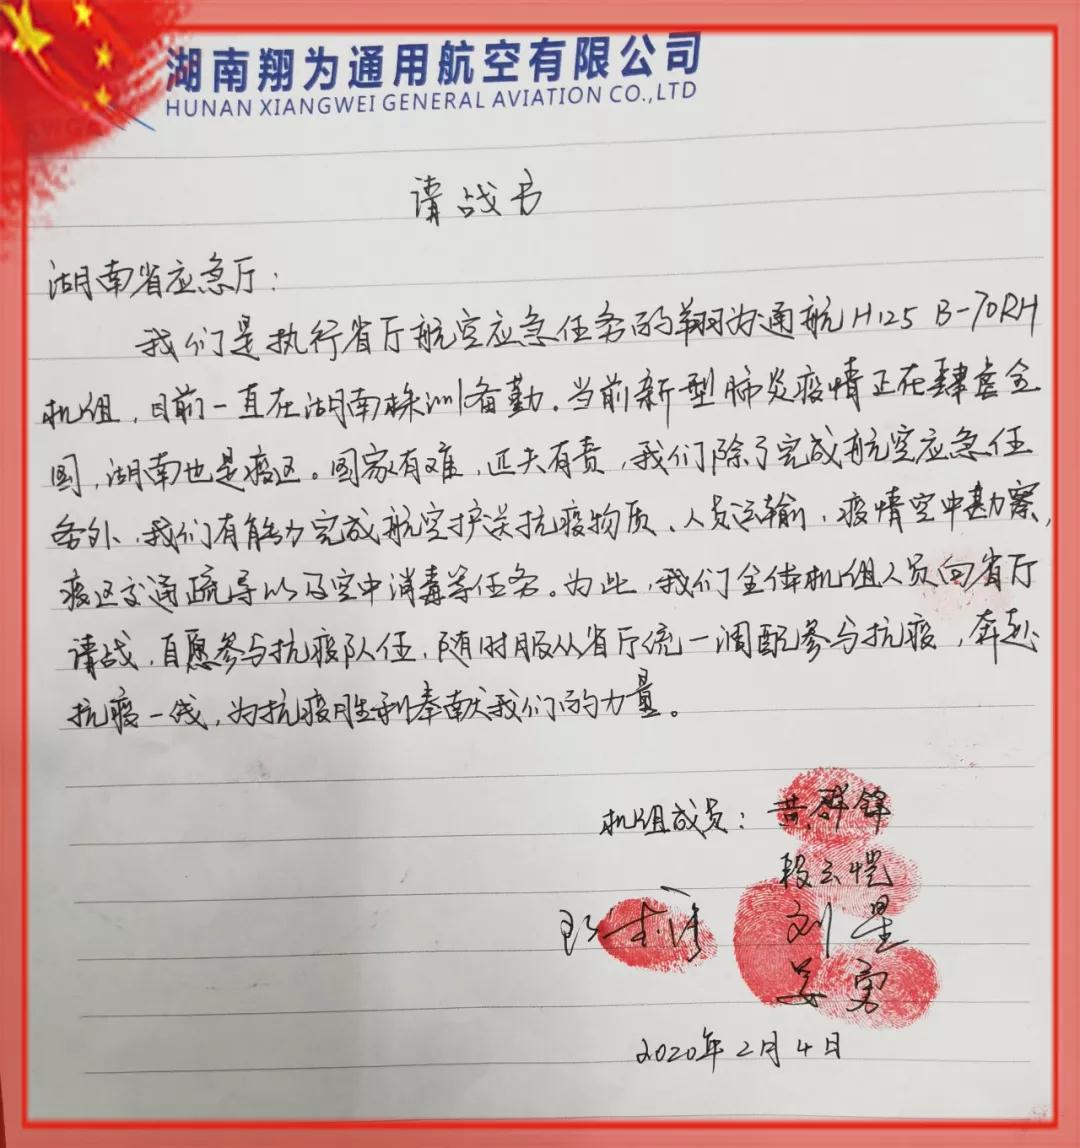 湖南翔为通用航空有限公司
HUNAN XIANGWEI GENERAL AVIATION CO.,LTD
请战书
湖南省应急厅：
我们是执行省厅航空应急任务的翔为通航H125 B-70RH
机组，目前一直在湖南株洲备勤。当前新型肺炎疫情正在肆虐全
国，湖南也是疫区。国家有难，匹夫有责，我们除了完成航空应急任
务外，我们有能力完成航空护送抗疫物质、人员运输，疫情空中勘察，
疫区交通疏导以及空中消毒等任务。为此，我们全体机组人员向省厅
请战，自愿参与抗疫队伍，随时服从省厅统一调配参与抗疫，奔赴
抗疫一线，为抗疫胜利奉献我们的力量。
机组成员：黄群锋
段云恺
刘星
姜勇
2020年2月4日